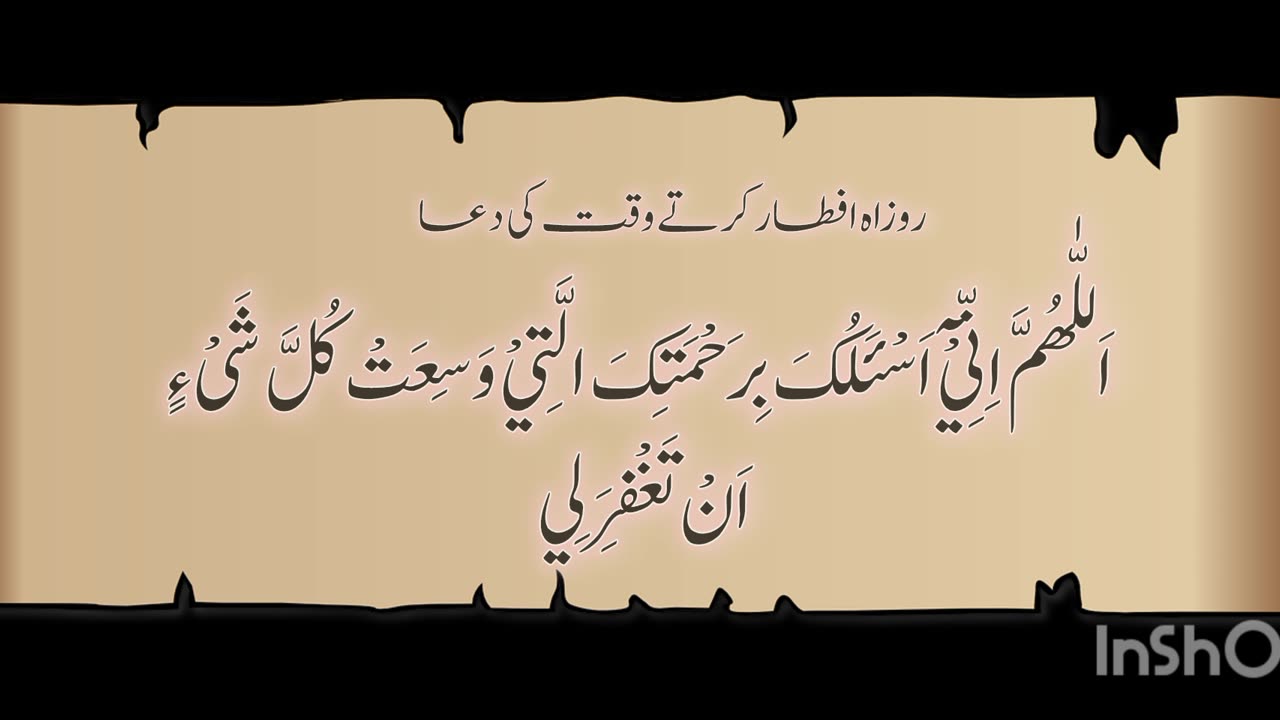 روزاہ افطار کرتے وقت کی دعا
اَللّٰهُمَّ اِنِّیْۤ اَسْئَلُکَ بِرَحْمَتِکَ الَّتِيْ وَسِعَتْ کُلَّ شَیْءٍ
اَنْ تَغْفِرَ لِي
InShO